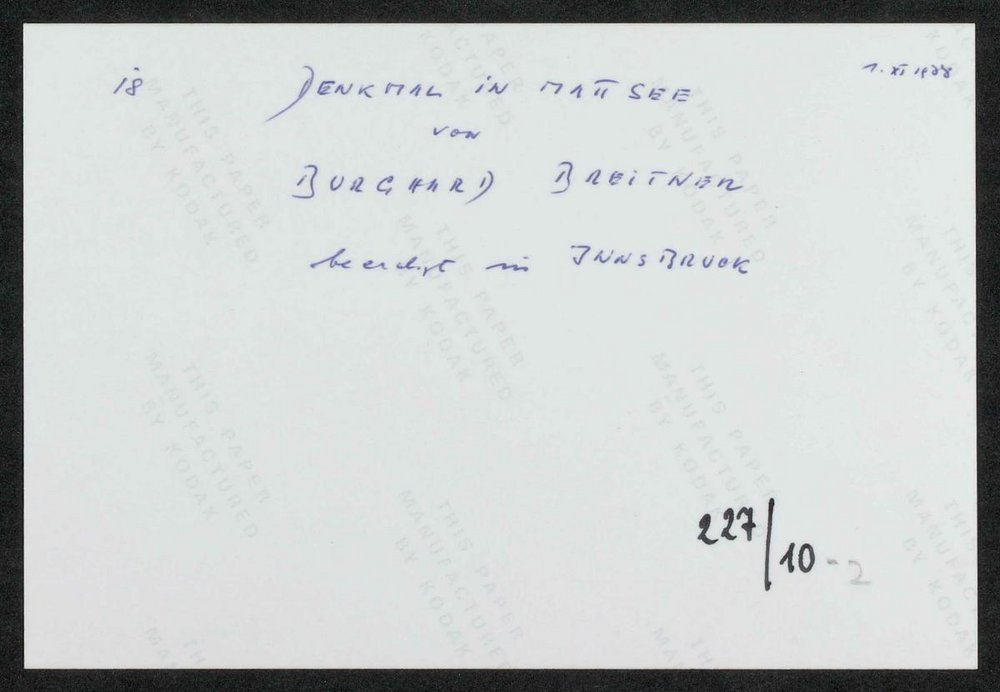 18
DENKMAL IN MATTSEE
1. XI 1988
von
BURGHARD BREITNER
beerdigt in INNSBRUCK
227/10-2
THIS PAPER
MANUFACTURED
BY KODAK